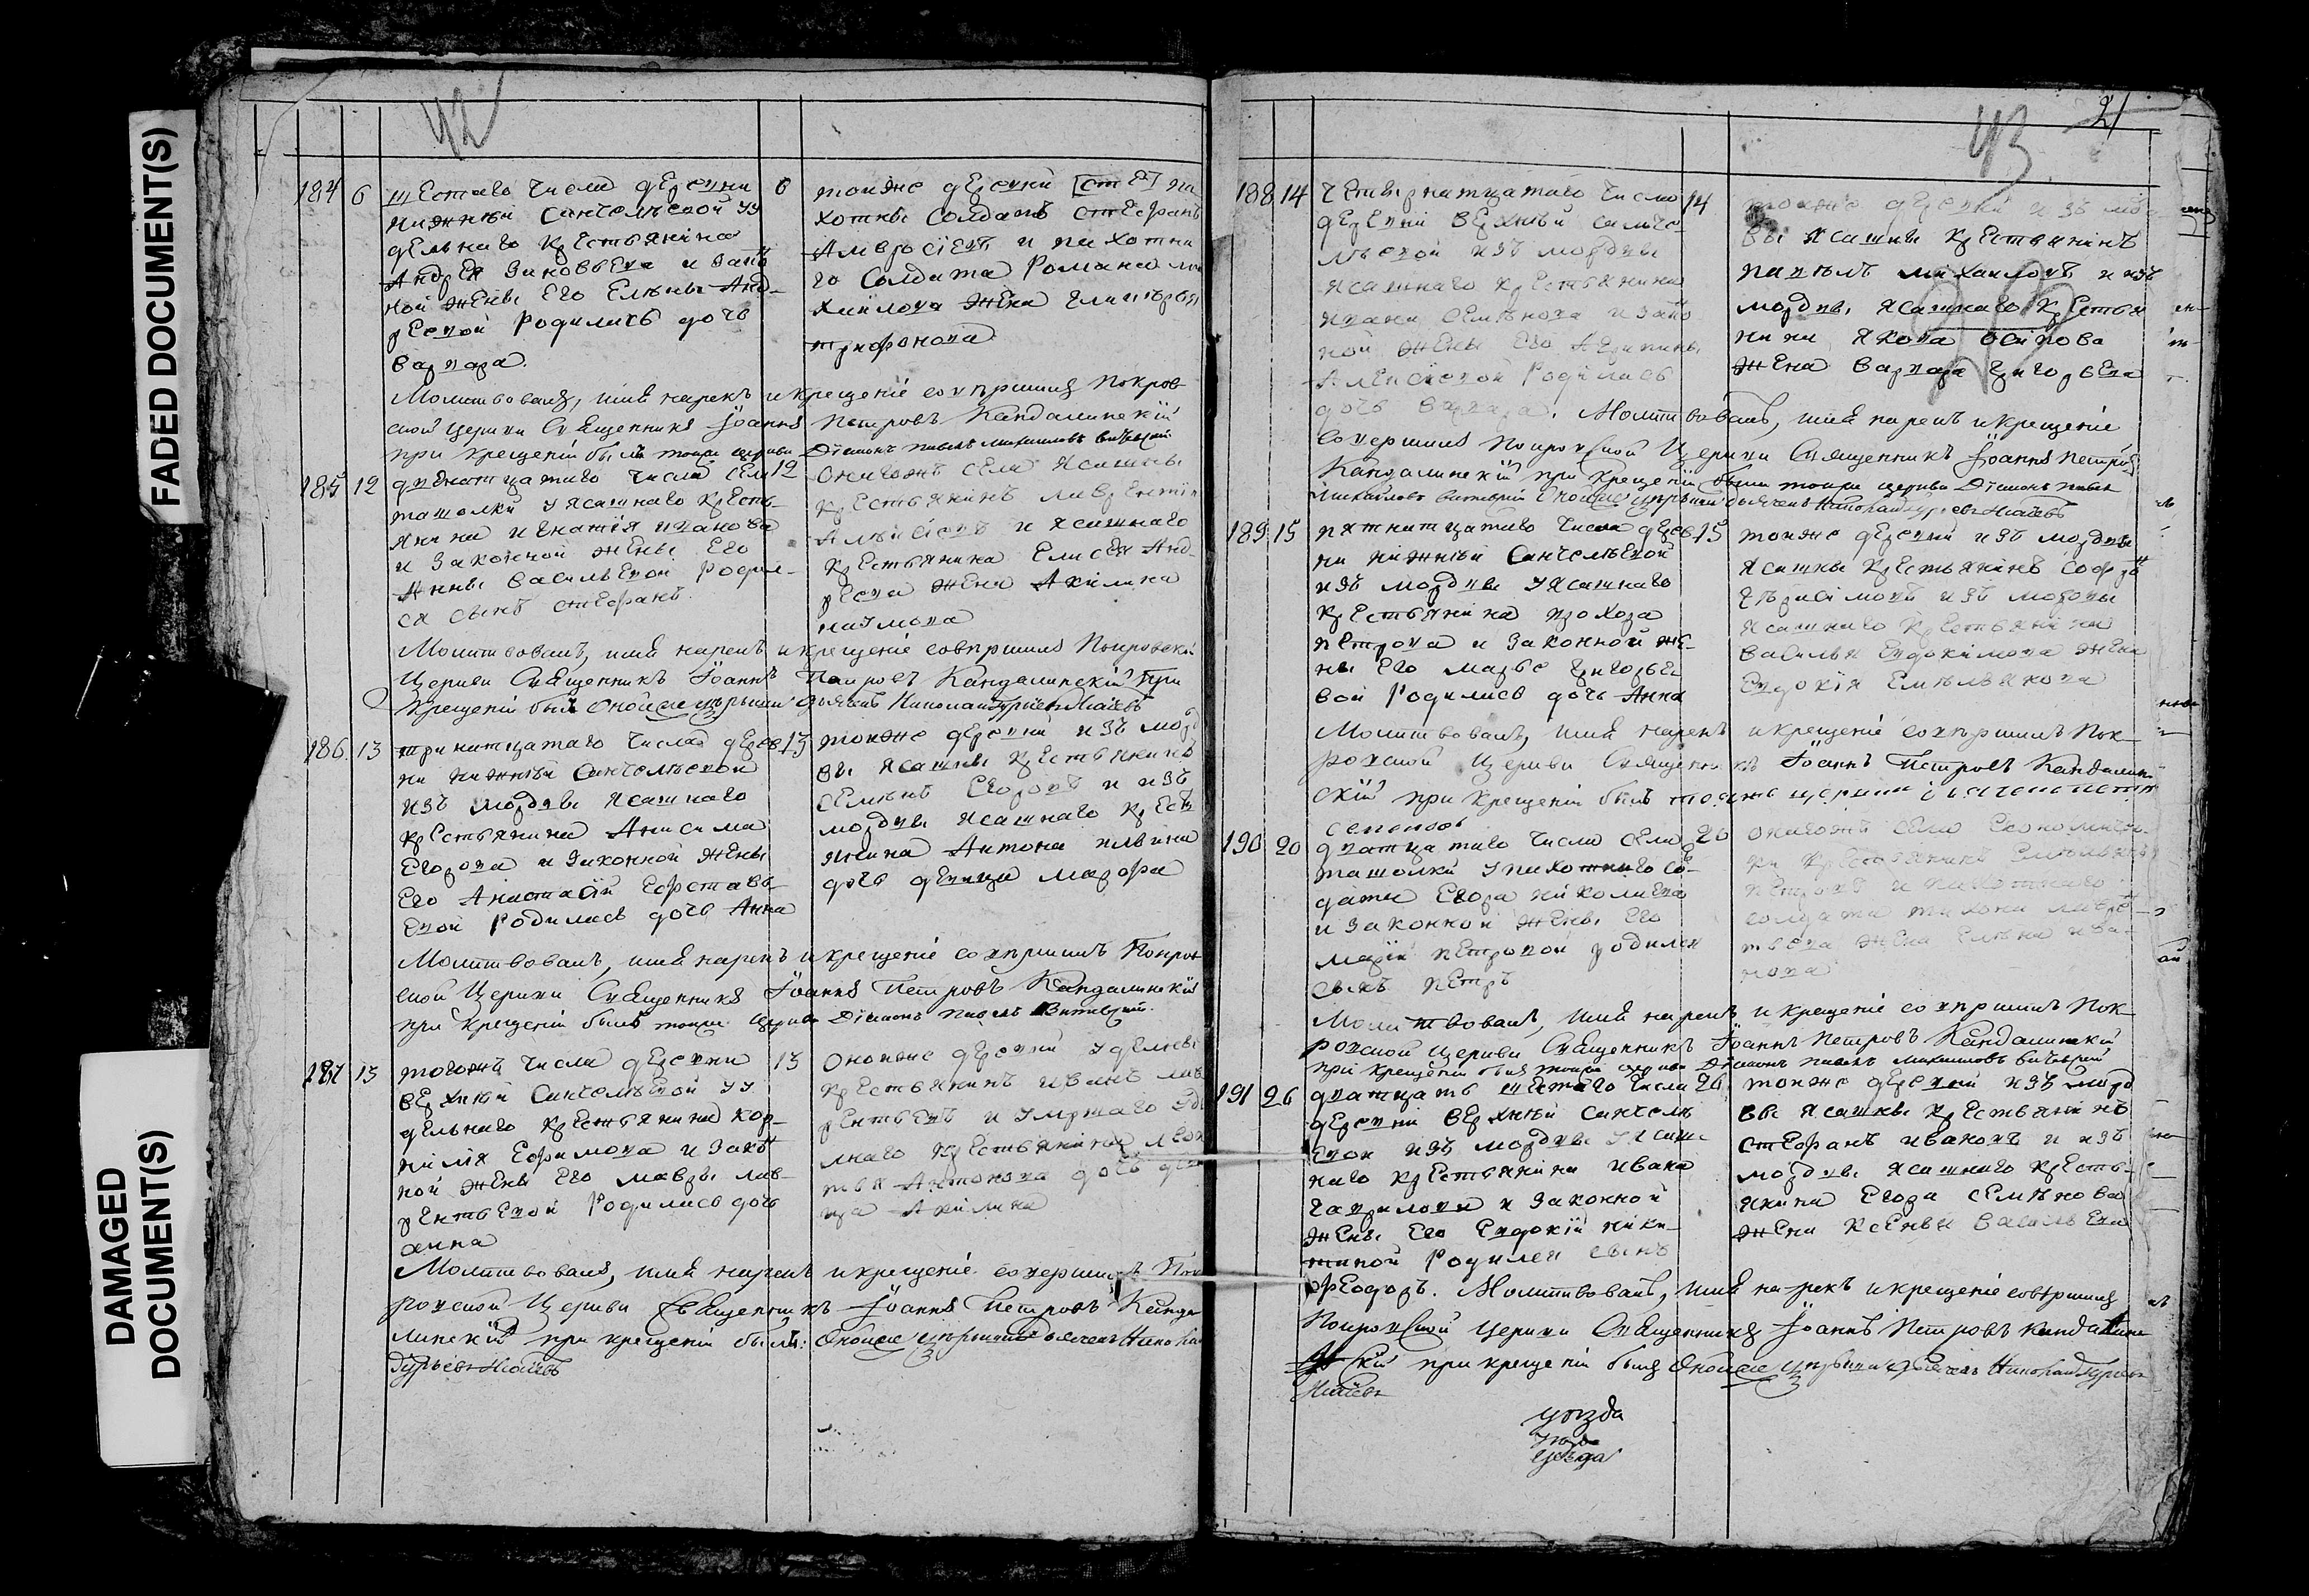 FADED DOCUMENT(S)
DAMAGED
DOCUMENT(S)
42
184 6 шестаго числа деревни
нижней Санчелѣевой у у
дельнаго крестьянина
Андрея Зиновьева и закон
ной жены его Елены Анд-
реевой родилась дочь
варвара.
6 тояже деревни [сте] пѣ
хотны солдатъ стефанъ
Амвросіевъ и пехотна
го солдата Романа ми
хаилова жена гликерья
трифонова
Молитвовалъ, имя нарекъ и крещеніе совершилъ Покров
ской Церкви Священникъ Іоаннъ Петровъ Кандалинскій
при крещеніи былъ тояже церкви Діаконъ павелъ михаиловъ
185 12 двенатцатаго числа села
ташолки у ясашнаго кресть-
янина игнатія иванова
и законной жены его
Анны васильевой родил-
ся сынъ стефанъ.
12 онагожъ села ясашны
крестьянинъ лаврентіи
Алексіевъ и ясашнаго
крестьянина елисея Анд-
реева жена Акилина
наумова
Молитвовалъ, имя нарекъ и крещеніе совершилъ Покровской
Церкви Священникъ Іоаннъ Петровъ Кандалинскій при
крещеніи былъ оной же церькви дьячекъ Николай Гурьевъ
186. 13 тринатцатаго числа дерев
ни нижней Санчелѣевой
изъ мордвы ясашнаго
крестьянина Анисима
Егорова и законной жены
Его Анастасіи Ефставь-
евой родилась дочь Анна
13 тояже деревни изъ морд
вы ясашны крестьянинъ
семенъ Егоровъ и изъ
мордвы ясашнаго кресть
янина Антона ильина
дочь девица марфа
Молитвовалъ, имя нарекъ и крещеніе совершилъ Покров
ской Церкви Священникъ Іоаннъ Петровъ Кандалинскій
при крещеніи былъ тояже церкви Діаконъ Павелъ
187 13 тогожъ числа деревни
верхней Санчелѣевой у у
дельнаго крестьянина кор-
нилія Ефимова и закон
ной жены его мавры лав-
рентьевой родилась дочь
анна
13 онояже деревни удельны
крестьянинъ иванъ лав
рентьевъ и умршаго уде
лнаго крестьянина леон
тья Антонова дочь деви
ца Акилина
Молитвовалъ, имя нарекъ и крещеніе совершилъ Пок
ровской Церкви Священникъ Іоаннъ Петровъ Канда
линскій при крещеніи былъ: оной же церькви дьячекъ Николай
Гурьевъ
43 21
188 14 четырнатцатаго числа
деревни верхней санчe-
лѣевой изъ мордвы
ясашнаго крестьянина
ивана семенова и закон
ной жены его Агрипины
Алексіевой родилась
14 тояже деревни изъ мо
вы ясашны крестьянинъ
павелъ михаиловъ и изъ
мордвы ясашнаго крестья
нина якова осипова
жена варвара григорьева
дочь варвара. Молитвовалъ, имя нарекъ и крещеніе
совершилъ Покровской Церкви Священникъ Іоаннъ Петровъ
Кандалинскій при крещеніи были тояже церкви Діаконъ павелъ
михаиловъ оной же церькви дьячекъ Николай Гурьевъ
189 15 пятнатцатаго числа дерев
ни нижней Санчелѣевой
изъ мордвы у ясашнаго
крестьянина прохора
петрова и законной же-
ны его марьe григорьe
вой родилась дочь Анна
15 тояже деревни изъ мордвы
ясашны крестьянинъ софрон
герасимовъ изъ мордвы
ясашнаго крестьянина
василья евдокимова жена
евдокія емельянова
Молитвовалъ, имя нарекъ и крещеніе совершилъ Пок-
ровской Церкви Священникъ Іоаннъ Петровъ Кандалин
скій при крещеніи былъ тояже церкви
190 20 дватцатаго числа села
ташолки у пихотнаго сол-
дата Егора николаева
и законной жены его
марьи петровой родился
сынъ петръ
20 онагожъ села економиче-
ки крестьянинъ емельянъ
петровъ и пихотнаго
солдата тихона
жена елена ива-
нова
Молитвовалъ, имя нарекъ и крещеніе совершилъ Пок-
ровской Церкви Священникъ Іоаннъ Петровъ Кандалинскій
при крещеніи былъ тояже церкви Діаконъ павелъ михаиловъ
191 26 дватцать шестаго числа
деревни верхней санчелѣ
евой изъ мордвы у ясаш
наго крестьянина ивана
гаврилова и законной
жены его Евдокіи ники-
тиной родился сынъ
26 тояже деревни изъ морд
вы ясашны крестьянинъ
стефанъ ивановъ и изъ
мордвы ясашнаго кресть-
янина Егора семенова
жена ксенья васильева
феодоръ. Молитвовалъ, имя нарекъ и крещеніе совершилъ
Покровской церкви Священникъ Іоаннъ Петровъ Кандалин
скій при крещеніи былъ оной же церькви дьячекъ Николай Гурьевъ
уѣзда
уѣзда